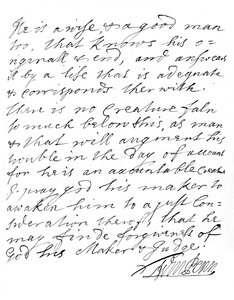 He is a wise, & a good man
too, that knows his o-
riginall & end, and answears
it by a life that is adequate
& corrisponds therwith.
there is no Creature faln
so much below this, as man
& that will augment his
trouble in the day of account
for he is an accountable Creature
I pray god his maker to
awaken him to a just Con-
sideration therof, that he
may finde forgivness of
God his Maker & Judge.
Wm Penn